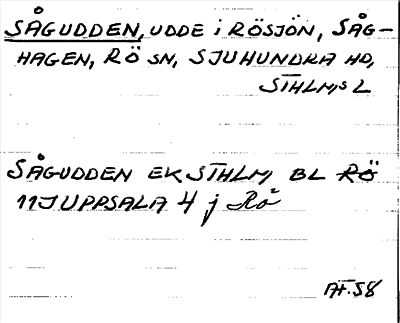 SÅGUDDEN, UDDE i RÖSJÖN, SÅG-
HAGEN, RÖ SN, SJUHUNDRA HD,
STHLM,S L
SÅGUDDEN EK STHLM, BL RÖ
11J UPPSALA 4 j Rö²
AF.58